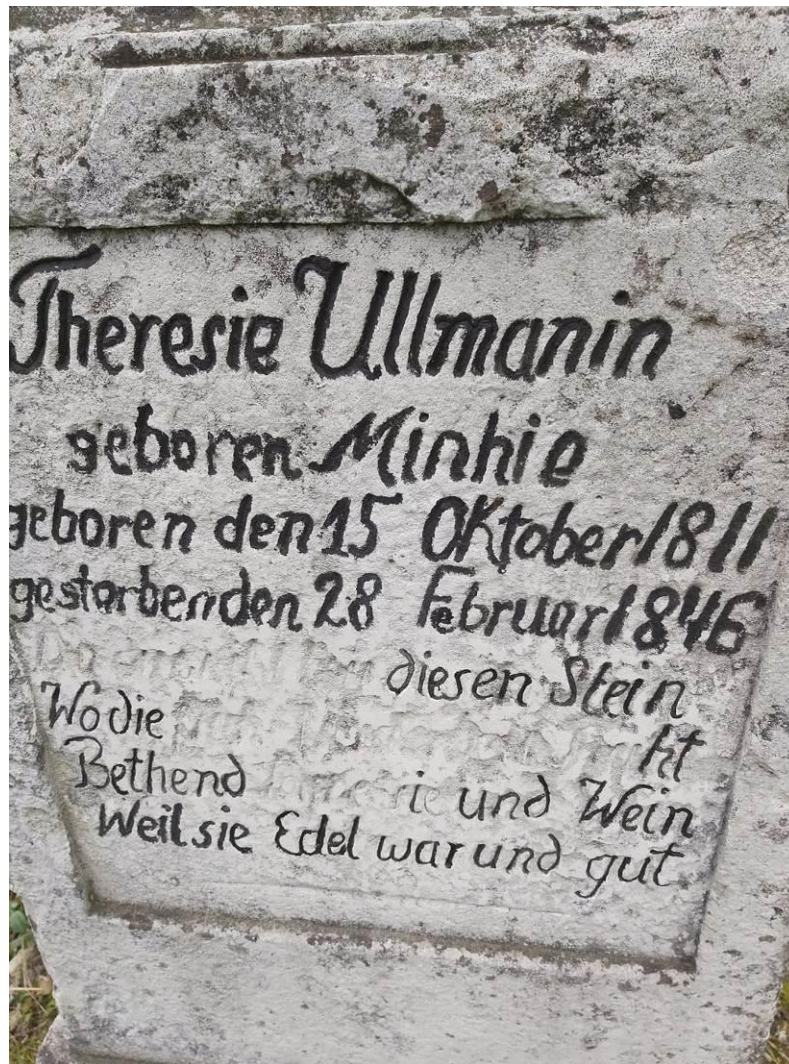 Theresie Ullmanin
geboren Minhie
geboren den 15 Oktober 1811
gestorben den 28 Februar 1846
diesen Stein
Wo die
Bethend und Wein
Weil sie Edel war und gut